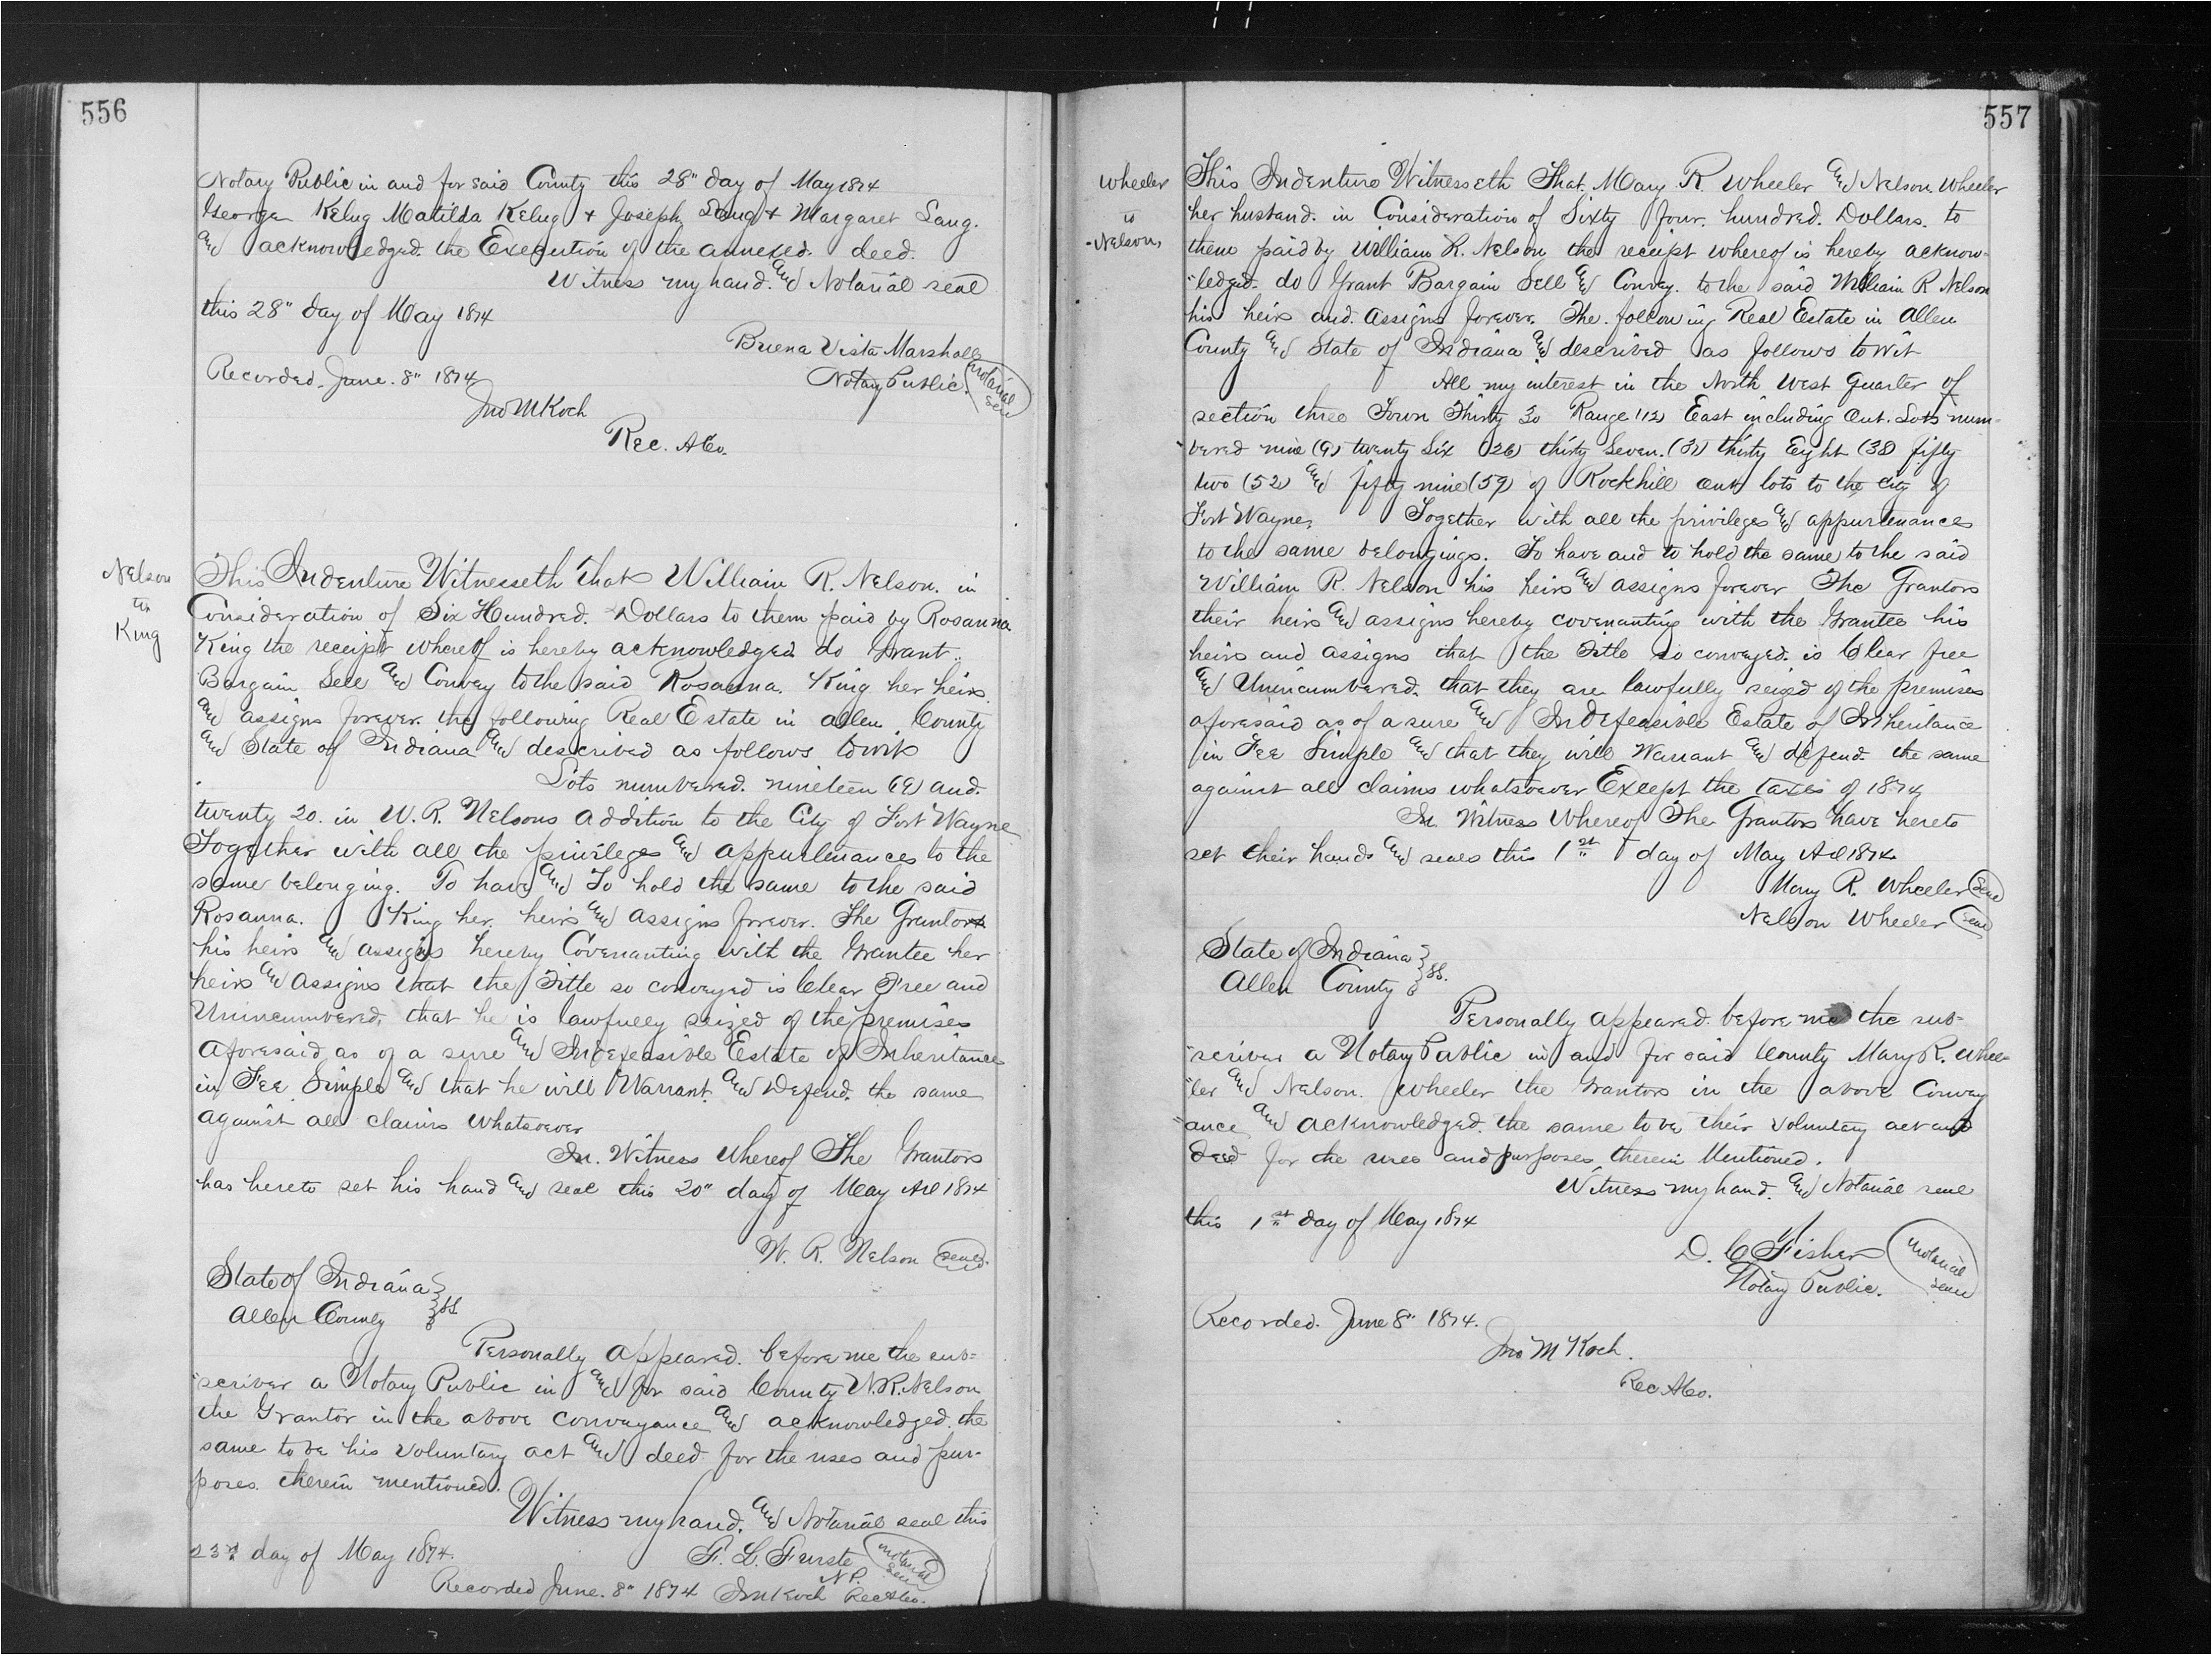 556
Notary Public in and for said County this 28" day of May 1874
George Kelug Matilda Kelug & Joseph Lang & Margaret Lang.
and acknowledged the Execution of the annexed deed.
Witness my hand and Notarial seal
this 28" day of May 1874
Buena Vista Marshall
Notary Public. Notarial Seal
Recorded June 8" 1874
Jno M Koch
Rec. A Co.
Nelson
to
King
This Indenture Witnesseth that William R. Nelson. in
Consideration of Six Hundred Dollars to them paid by Rosanna
King the receipt whereof is hereby acknowledged do Grant
Bargain Sell and Convey to the said Rosanna King her heirs
and assigns forever the following Real Estate in Allen County
and State of Indiana and described as follows towit
Lots numbered nineteen (19) and
twenty 20. in W. R. Nelsons Addition to the City of Fort Wayne
Together with all the privileges and appurtenances to the
same belonging. To have and To hold the same to the said
Rosanna King her heirs and assigns forever. The Grantor
his heirs and assigns hereby Covenanting with the Grantee her
heirs and assigns that the Title so conveyed is Clear Free and
Unincumbered, that he is lawfully seized of the premises
aforesaid as of a sure and Indefeasible Estate of Inheritance
in Fee Simple and that he will Warrant and Defend the same
against all claims whatsoever
In Witness Whereof The Grantors
has hereto set his hand and seal this 20" day of May Ad 1874
W. R. Nelson Seal
State of Indiana
Allen County } ss.
Personally appeared before me the sub=
"scriber a Notary Public in and for said County W. R. Nelson
the Grantor in the above conveyance and acknowledged the
same to be his voluntary act and deed for the uses and pur-
poses therein mentioned.
Witness my hand and Notarial seal this
23rd day of May 1874.
F. L. Furste Notarial Seal
N P.
Recorded June 8" 1874 Jno M Koch Rec A Co.
557
Wheeler
to
Nelson
This Indenture Witnesseth That Mary R. Wheeler and Nelson Wheeler
her husband in Consideration of Sixty four hundred Dollars to
them paid by William R. Nelson the receipt whereof is hereby acknow-
"ledged do Grant Bargain Sell and Convey to the said William R Nelson
his heirs and assigns forever The following Real Estate in Allen
County and State of Indiana and described as follows towit
All my interest in the North West Quarter of
section three Town Thirty 30 Range (12) East including Out Lots num-
"bered nine (9) twenty six (26) thirty seven (37) thirty Eight (38) fifty
two (52) and fifty nine (59) of Rockhill out lots to the City of
Fort Wayne. Together with all the privileges and appurtenances
to the same belongings. To have and to hold the same to the said
William R. Nelson his heirs and assigns forever The Grantors
their heirs and assigns hereby covenanting with the Grantee his
heirs and assigns that the Title so conveyed is Clear free
and Unincumbered that they are lawfully seized of the premises
aforesaid as of a sure and Indefeasible Estate of Inheritance
in Fee Simple and that they will Warrant and defend the same
against all claims whatsoever Except the taxes of 1874
In Witness Whereof The Grantors have hereto
set their hands and seals this 1st day of May Ad 1874
Mary R. Wheeler Seal
Nelson Wheeler Seal
State of Indiana
Allen County } ss.
Personally appeared before me the sub=
"scriber a Notary Public in and for said County Mary R. Whee=
"ler and Nelson Wheeler the Grantors in the above Convey
"ance and acknowledged the same to be their voluntary act and
Deed for the uses and purposes therein Mentioned.
Witness my hand and Notarial seal
this 1st day of May 1874
D. C Fisher Notarial Seal
Notary Public.
Recorded June 8" 1874.
Jno M Koch.
Rec A Co.